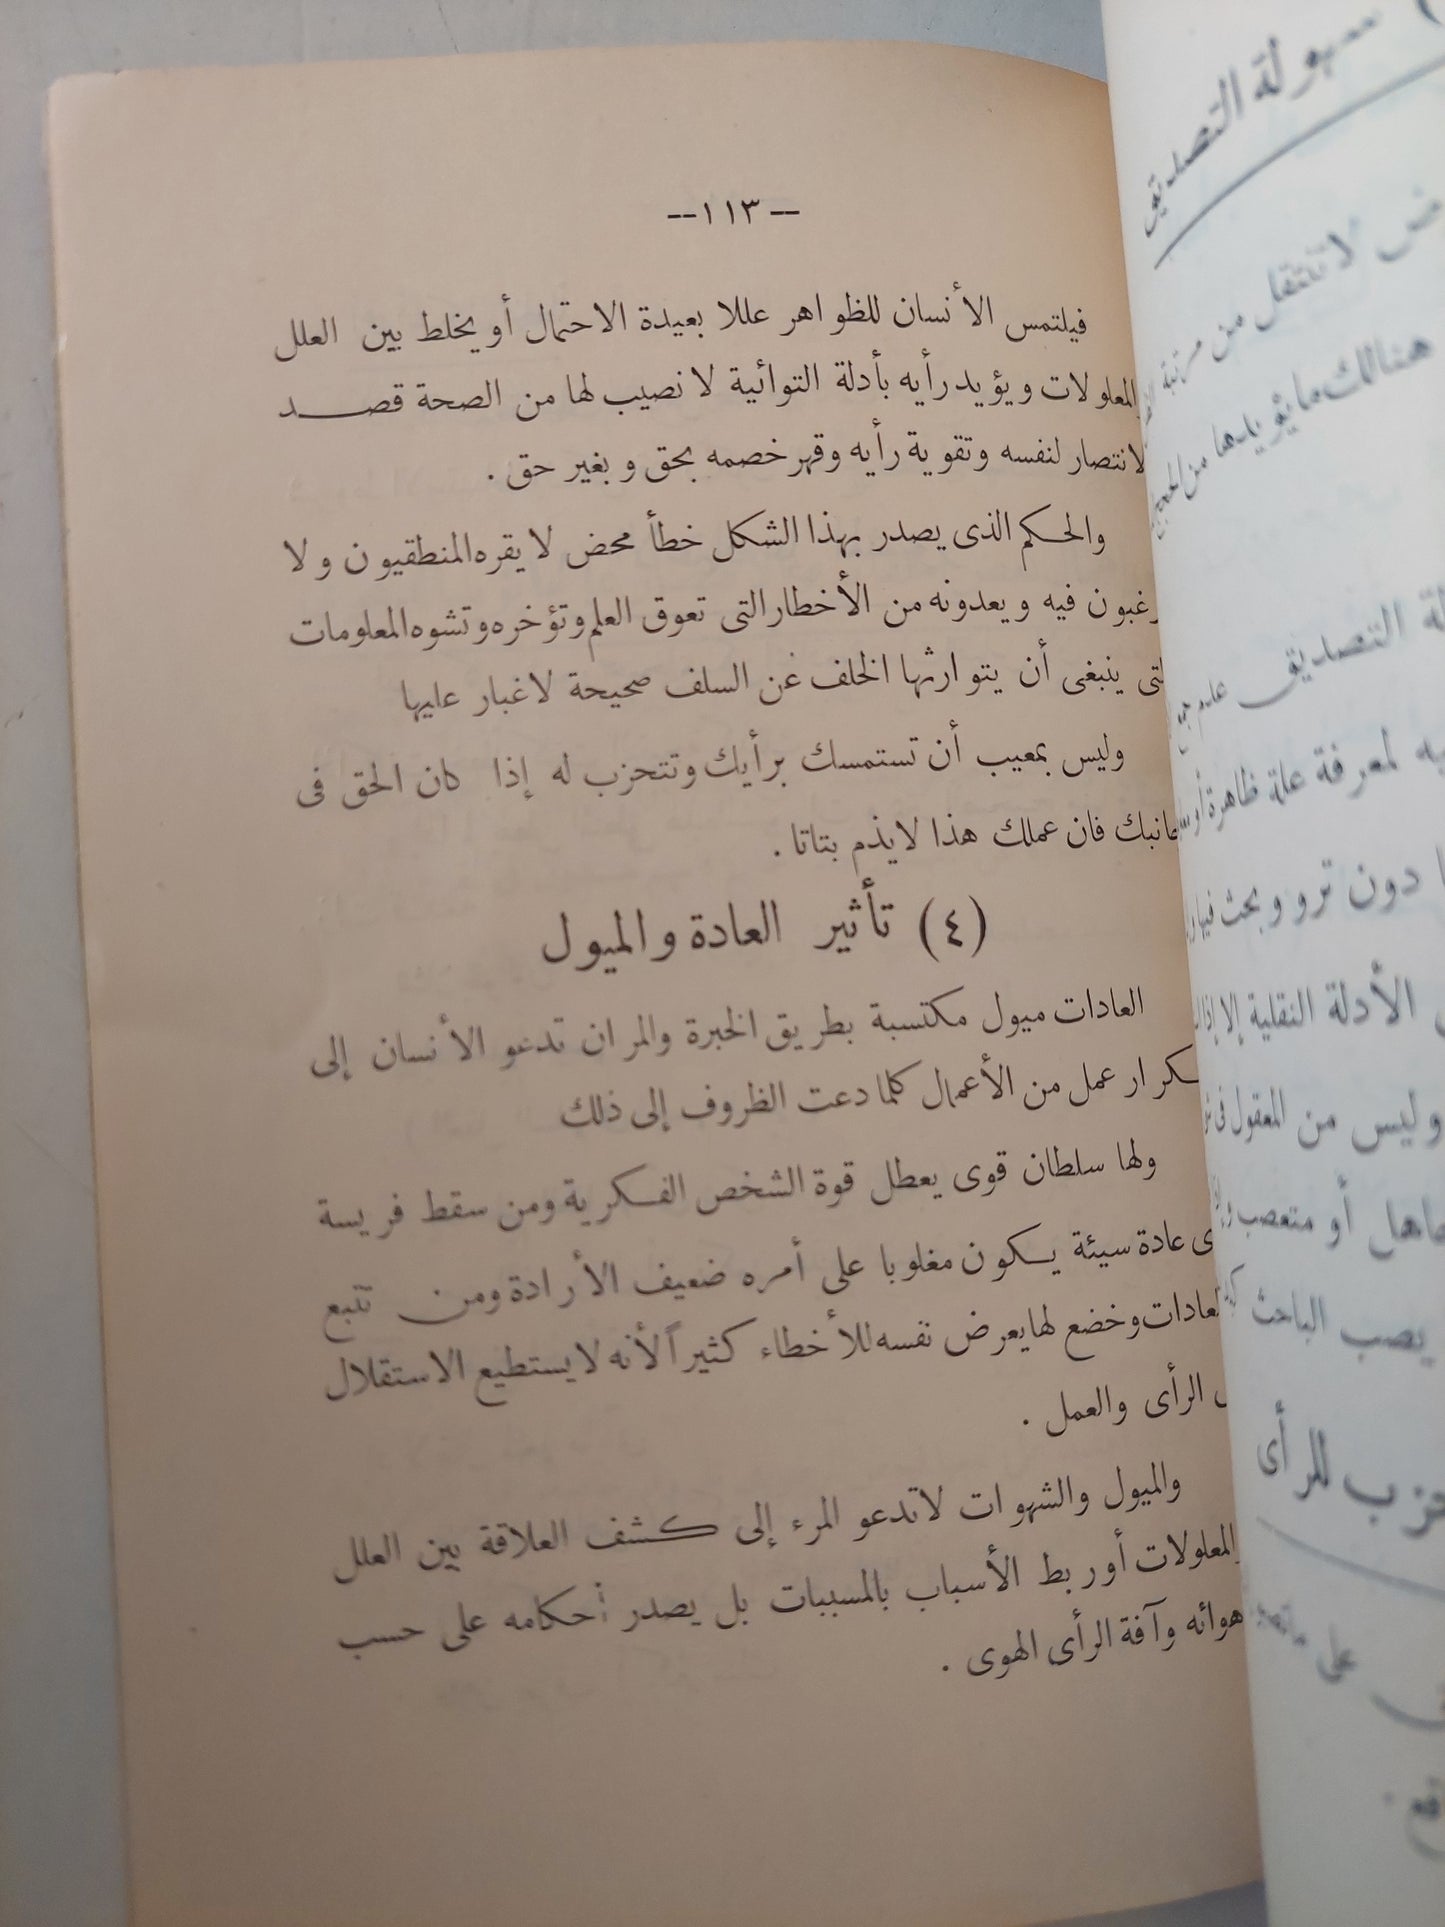 --١١٣--
فيلتمس الأنسان للظواهر عللا بعيدة الاحتمال أو يخلط بين العلل
المعلولات ويؤيد رأيه بأدلة التوائية لا نصيب لها من الصحة قصد
لانتصار لنفسه وتقوية رأيه وقهر خصمه بحق وبغير حق .
والحكم الذى يصدر بهذا الشكل خطأ محض لا يقره المنطقيون ولا
رغبون فيه ويعدونه من الأخطار التى تعوق العلم وتؤخره وتشوه المعلومات
لتى ينبغى أن يتوارثها الخلف عن السلف صحيحة لاغبار عليها
وليس بمعيب أن تستمسك برأيك وتتحزب له إذا كان الحق فى
جانبك فان عملك هذا لايذم بتاتا .
(٤) تأثير العادة والميول
العادات ميول مكتسبة بطريق الخبرة والمران تدعو الأنسان إلى
كرار عمل من الأعمال كلما دعت الظروف إلى ذلك
ولها سلطان قوى يعطل قوة الشخص الفكرية ومن سقط فريسة
ى عادة سيئة يكون مغلوبا على أمره ضعيف الأرادة ومن تتبع
لعادات وخضع لها يعرض نفسه للأخطاء كثيراً لأنه لا يستطيع الاستقلال
الرأى والعمل .
والميول والشهوات لاتدعو المرء إلى كشف العلاقة بين العلل
المعلولات أو ربط الأسباب بالمسببات بل يصدر أحكامه على حسب
هوائه وآفة الرأى الهوى .
سهولة التصديق
لا تنتقل من مرتبة
هنالك ما يؤيدها من الحجج
التصديق عدم
لمعرفة علة ظاهرة أو
دون ترو وبحث فيها
الأدلة النقلية إلا إذا
وليس من المعقول فى
أو متعصب
يصب الباحث
للرأى
على